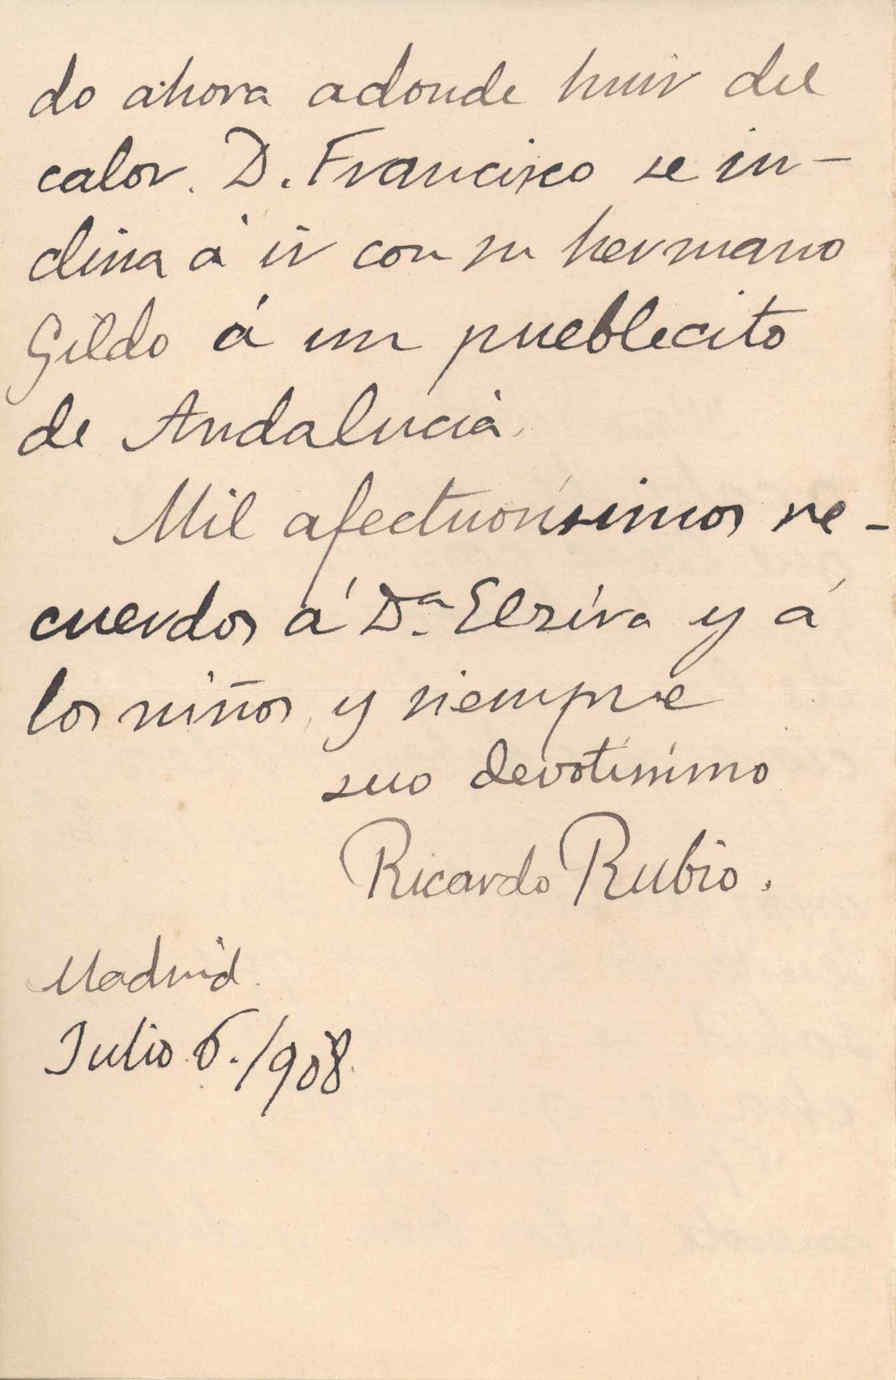 do ahora adonde huir del
calor. D. Francisco se in-
clina á ir con su hermano
Gildo á un pueblecito
de Andalucia.
Mil afectuosísimos re-
cuerdos á D.ª Elzira y á
los niños, y siempre
suo devotísimo
Ricardo Rubio.
Madrid.
Julio 6./908.